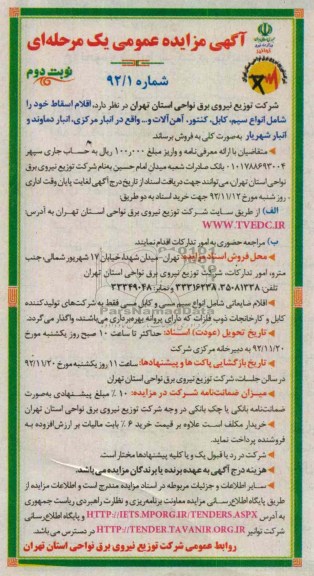 آگهی مزایده عمومی یک مرحله‌ای
شماره ۹۲/۱
نوبت دوم
شرکت توزیع نیروی برق نواحی استان تهران در نظر دارد، اقلام اسقاط خود را
شامل انواع سیم، کابل، کنتور، آهن آلات و... واقع در انبار مرکزی، انبار دماوند و
انبار شهریار به‌صورت کلی به فروش برساند.
متقاضیان با ارائه معرفی‌نامه و واریز مبلغ ۱۰۰,۰۰۰ ریال به حساب جاری سپهر
۰۱۰۱۷۸۸۶۹۳۰۰۴ بانک صادرات شعبه میدان امام حسین به‌نام شرکت توزیع نیروی برق
نواحی استان تهران، می‌توانند جهت دریافت اسناد از تاریخ درج آگهی لغایت پایان وقت اداری
روز شنبه مورخ ۹۲/۱۱/۱۲ جهت خرید اسناد به دو طریق:
الف) از طریق سایت شرکت توزیع نیروی برق نواحی استان تهران به آدرس:
WWW.TVEDC.IR
ب) مراجعه حضوری به امور تدارکات اقدام نمایند.
محل فروش اسناد مزایده: تهران- میدان شهدا، خیابان ۱۷ شهریور شمالی، جنب
مترو، امور تدارکات، شرکت توزیع نیروی برق نواحی استان تهران
تلفن: ۳۵۰۸۱۳۲۸، ۳۳۳۱۶۳۳۸ و نمابر: ۳۳۳۴۹۰۴۸
اقلام ضایعاتی شامل انواع سیم مسی و کابل مسی فقط به شرکت‌های تولیدکننده
کابل و کارخانجات ذوب فلزات که دارای پروانه بهره‌برداری می‌باشند، واگذار می‌گردد.
تاریخ تحویل (عودت) اسناد: حداکثر تا ساعت ۱۰ صبح روز یکشنبه مورخ
۹۲/۱۱/۲۰ به دبیرخانه مرکزی شرکت
تاریخ بازگشایی پاکت ها و پیشنهادها: ساعت ۱۱ روز یکشنبه مورخ ۹۲/۱۱/۲۰
در سالن جلسات، شرکت توزیع نیروی برق نواحی استان تهران
میزان ضمانت‌نامه شرکت در مزایده: ۱۰٪ مبلغ پیشنهادی به‌صورت
ضمانت‌نامه بانکی یا چک بانکی در وجه شرکت توزیع نیروی برق نواحی استان تهران
خریدار مکلف است علاوه بر قیمت خرید ۶٪ بابت مالیات بر ارزش‌افزوده به
فروشنده پرداخت نماید.
شرکت در رد یا قبول یک و یا کلیه پیشنهادها مختار است.
هزینه درج آگهی به عهده برنده یا برندگان مزایده می‌باشد.
سایر اطلاعات و جزئیات مربوطه در اسناد مزایده مندرج است و اطلاعات مزایده از
طریق پایگاه اطلاع‌رسانی مزایده معاونت برنامه‌ریزی و نظارت راهبردی ریاست جمهوری
به آدرس HTTP://IETS.MPORG.IR/TENDERS.ASPX و پایگاه اطلاع‌رسانی
شرکت توانیر HTTP://TENDER.TAVANIR.ORG.IR در دسترس می‌باشد.
روابط عمومی شرکت توزیع نیروی برق نواحی استان تهران
ParsNamadData